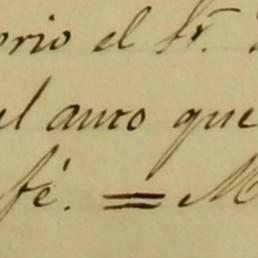 orio el Sr.
el auto que
fé. = M